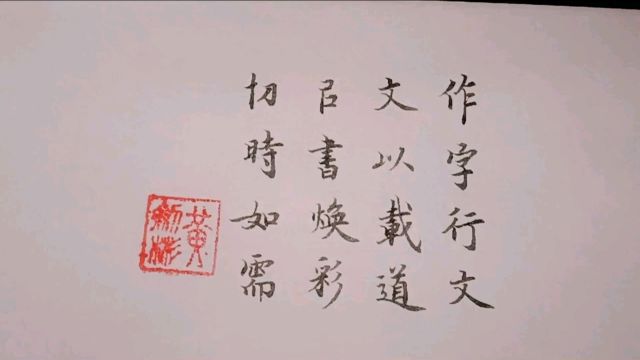 作字行文
文以載道
㠯書煥彩
切時如需
黃
彬